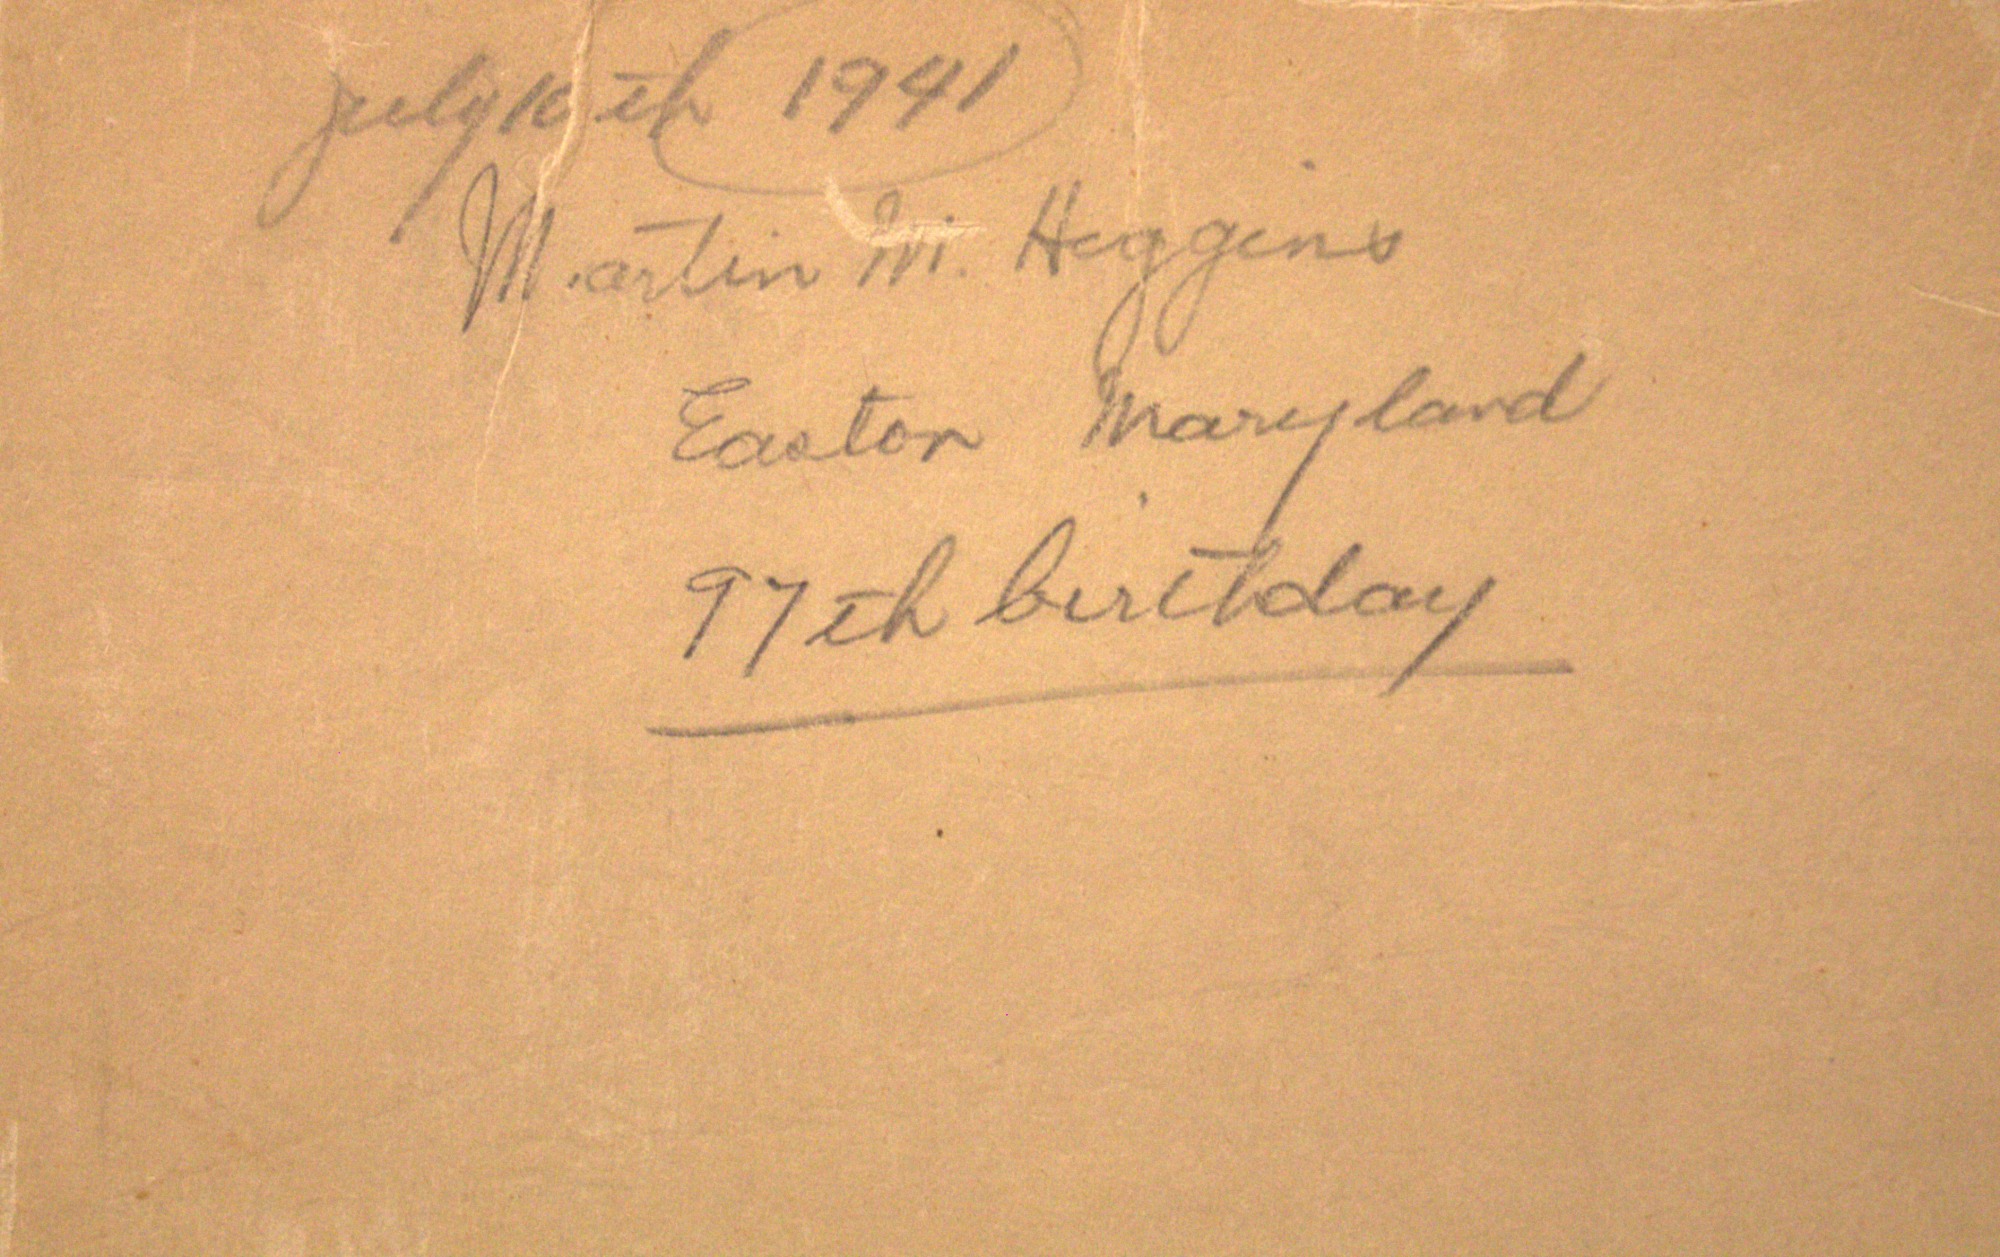 July 10th 1941
Martin M. Higgins
Easton Maryland
97th birthday